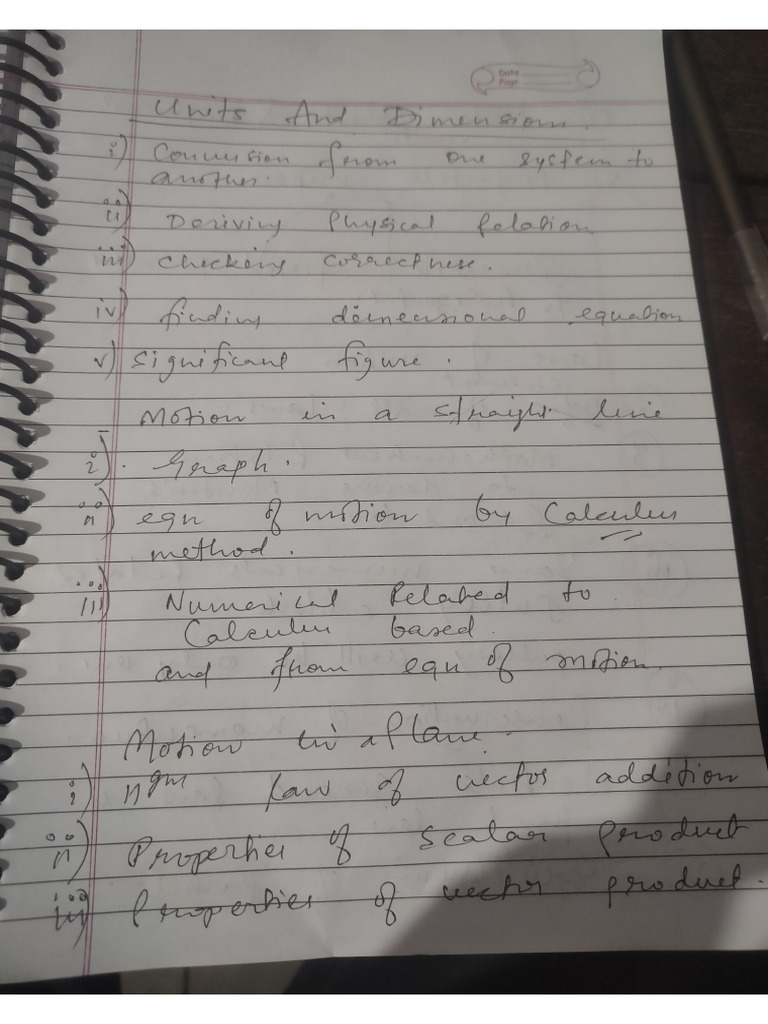 Date
Page
Units And Dimension.
i) Conversion from one system to
another.
ii) Deriving Physical Relation
iii) Checking correctness.
iv) finding dimensional equation
v) significant figure.
Motion in a straight line
i). Graph.
ii) eqn of motion by Calculus
method.
iii) Numerical Related to
Calculus based.
and from eqn of motion.
Motion in a Plane.
i) law of vector addition
ii) Properties of scalar product
iii) Properties of vector product.